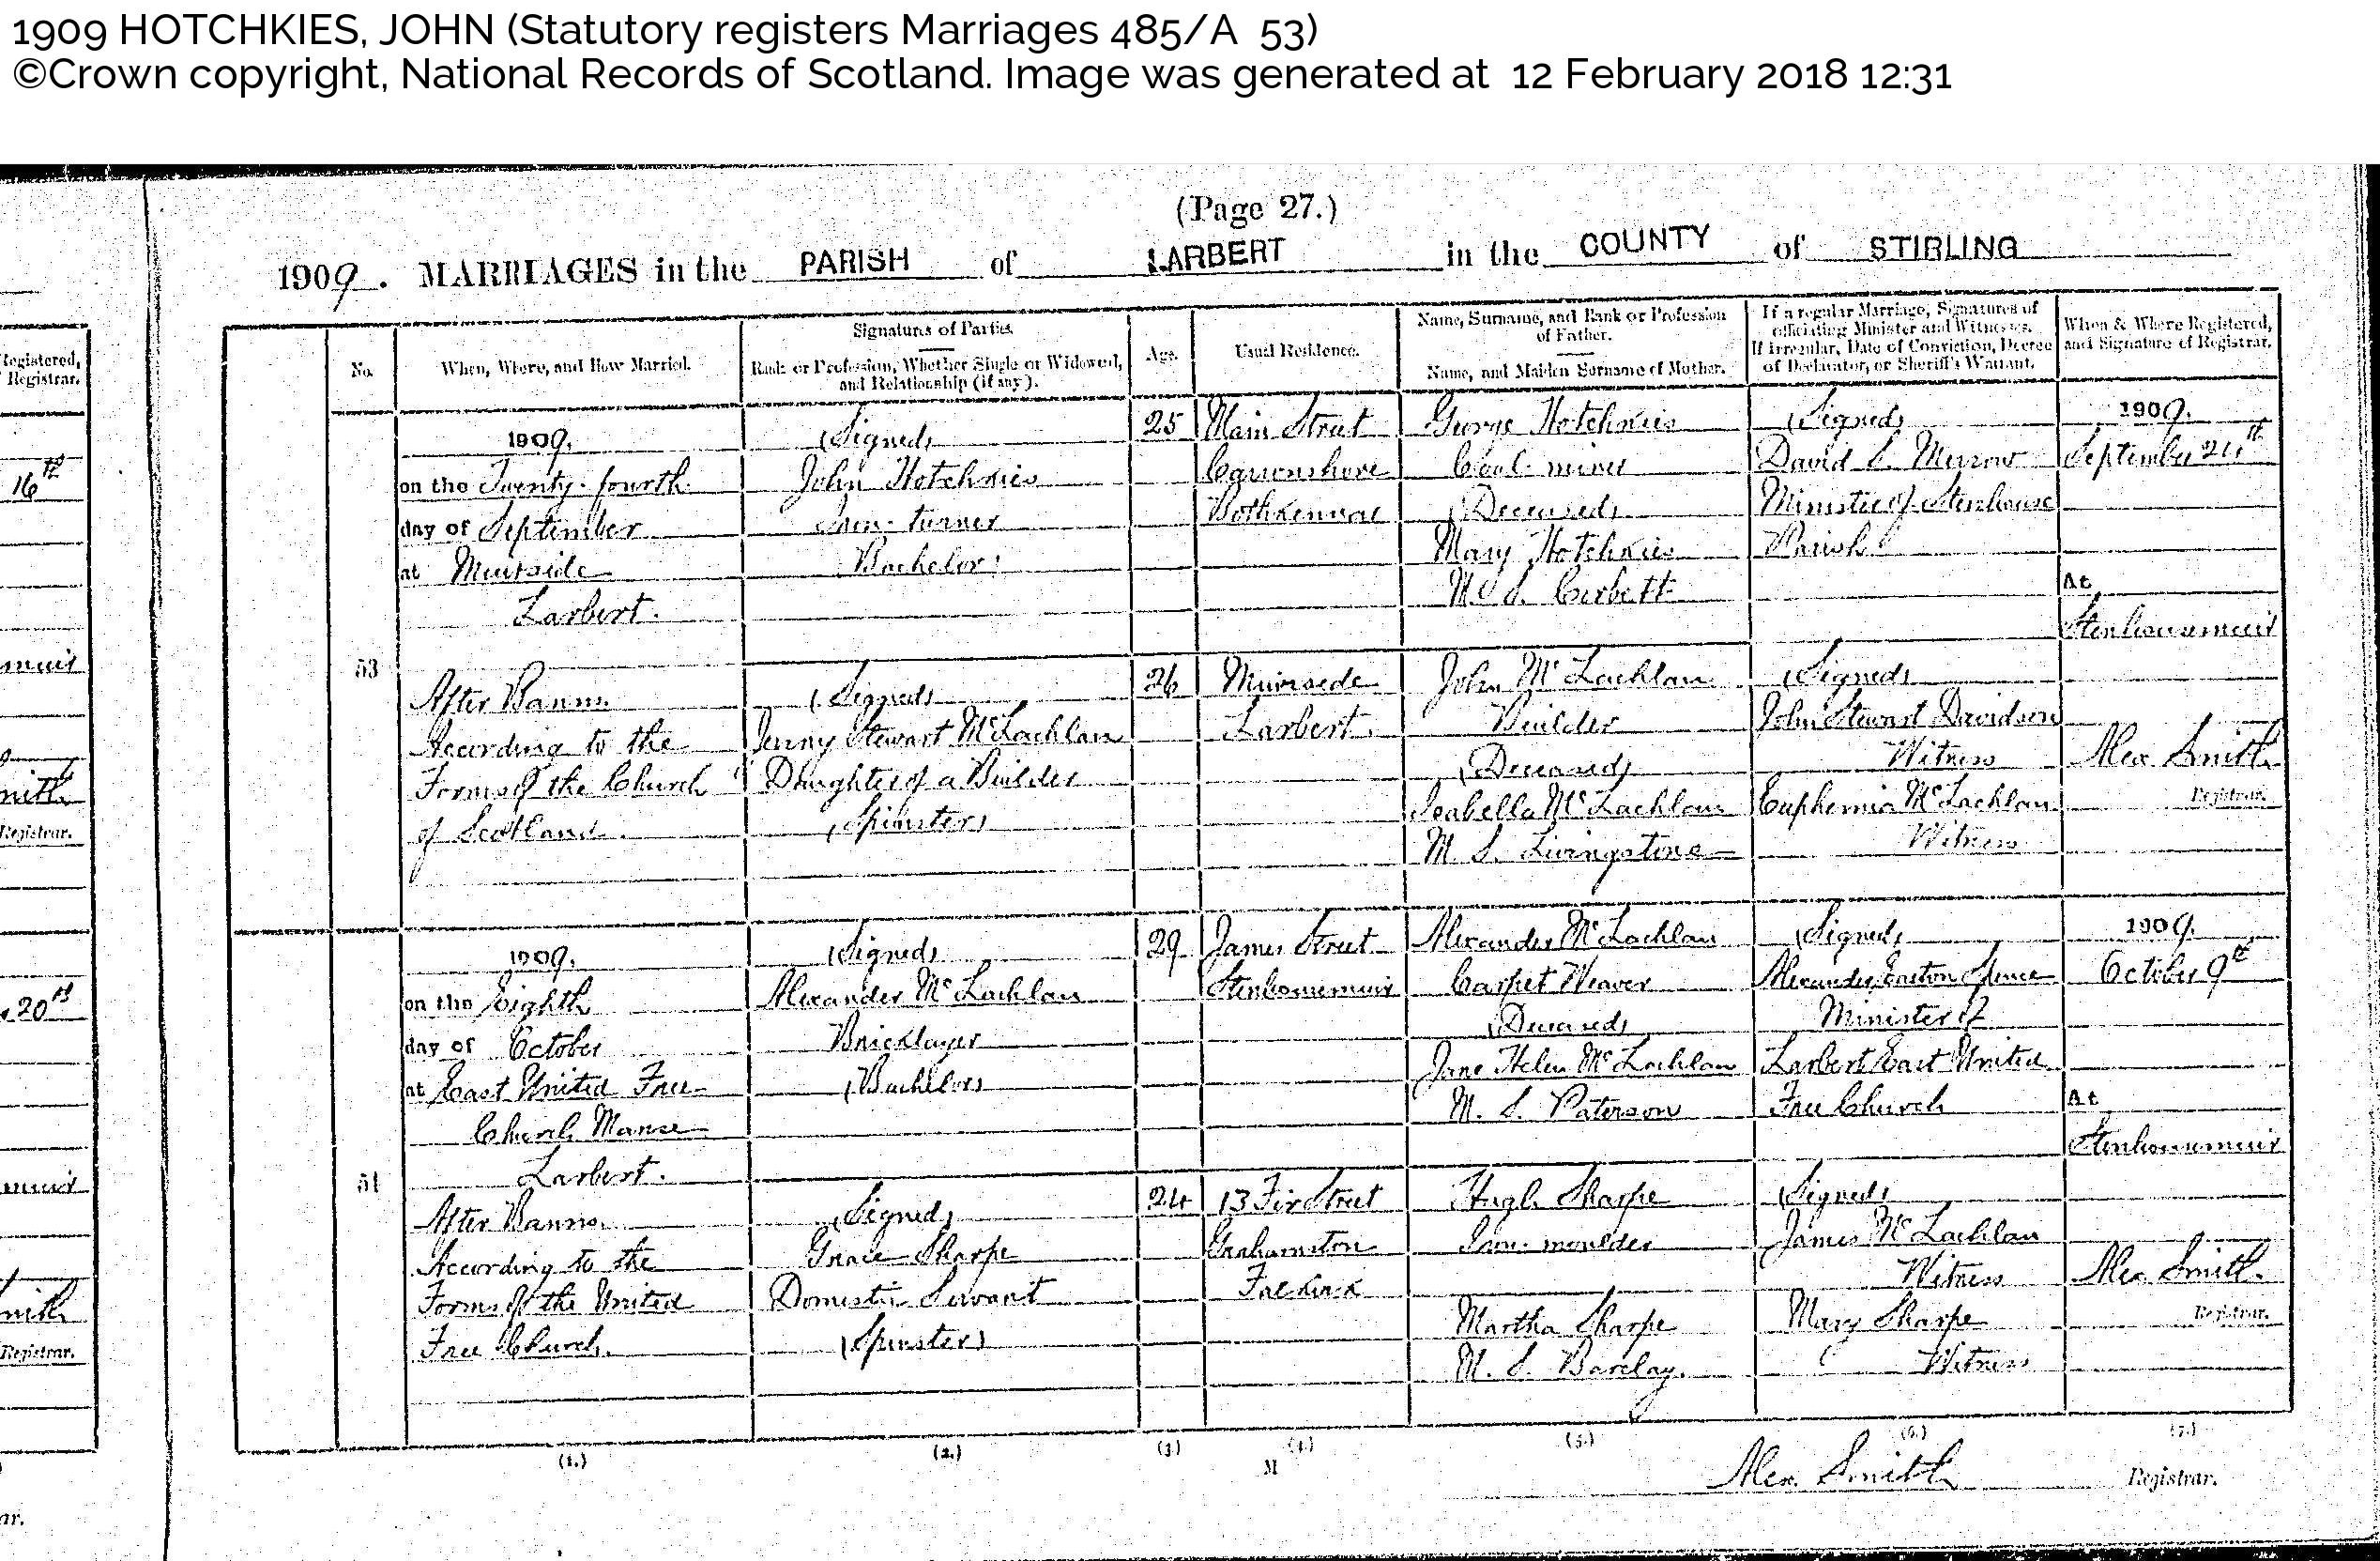 1909 HOTCHKIES, JOHN (Statutory registers Marriages 485/A 53)
©Crown copyright, National Records of Scotland. Image was generated at 12 February 2018 12:31
(Page 27.)
1909. MARRIAGES in the PARISH of LARBERT in the COUNTY of STIRLING
No.
When, Where, and How Married.
Signatures of Parties.
Rank or Profession, Whether Single or Widowed,
and Relationship (if any).
Age.
Usual Residence.
Name, Surname, and Rank or Profession
of Father.
Name, and Maiden Surname of Mother.
If a regular Marriage, Signatures of
officiating Minister and Witnesses.
If irregular, Date of Conviction, Decree
of Declarator, or Sheriff's Warrant.
When & Where Registered,
and Signature of Registrar.
53
1909.
on the Twenty-fourth
day of September
at Muirside
Larbert.
After Banns.
According to the
Forms of the Church
of Scotland.
(Signed)
John Hotchkies
Iron-turner
(Bachelor)
(Signed)
Jenny Stewart McLachlan
Daughter of a Builder
(Spinster)
25
26
Main Street
Carronshore
Bothkennar
Muirside
Larbert.
George Hotchkies
Coal-miner
(Deceased)
Mary Hotchkies
M. S. Corbett
John McLachlan
Builder
(Deceased)
Isabella McLachlan
M. S. Livingstone
(Signed)
David L.
Minister of Stenhouse
Parish
(Signed)
John Stewart Davidson
Witness
Euphemia McLachlan
Witness
1909.
September 24th
At
Stenhousemuir
Alex. Smith
Registrar.
54
1909.
on the Eighth
day of October
at East United Free
Church Manse
Larbert.
After Banns.
According to the
Forms of the United
Free Church.
(Signed)
Alexander McLachlan
Bricklayer
(Bachelor)
(Signed)
Grace Sharpe
Domestic Servant
(Spinster)
29
24
James Street
Stenhousemuir
13 Fir Street
Grahamston
Falkirk
Alexander McLachlan
Carpet Weaver
(Deceased)
Jane Helen McLachlan
M. S. Paterson
Hugh Sharpe
Iron-moulder
Martha Sharpe
M. S. Barclay.
(Signed)
Alexander Easton Spence
Minister of
Larbert East United
Free Church
(Signed)
James McLachlan
Witness
Mary Sharpe
Witness
1909.
October 9th
At
Stenhousemuir
Alex. Smith.
Registrar.
(1.) (2.) (3.) (4.) (5.) (6.) (7.)
M
Alex. Smith Registrar.
Registered,
Registrar.
16th
muir
Registrar.
20th
muir
Registrar.